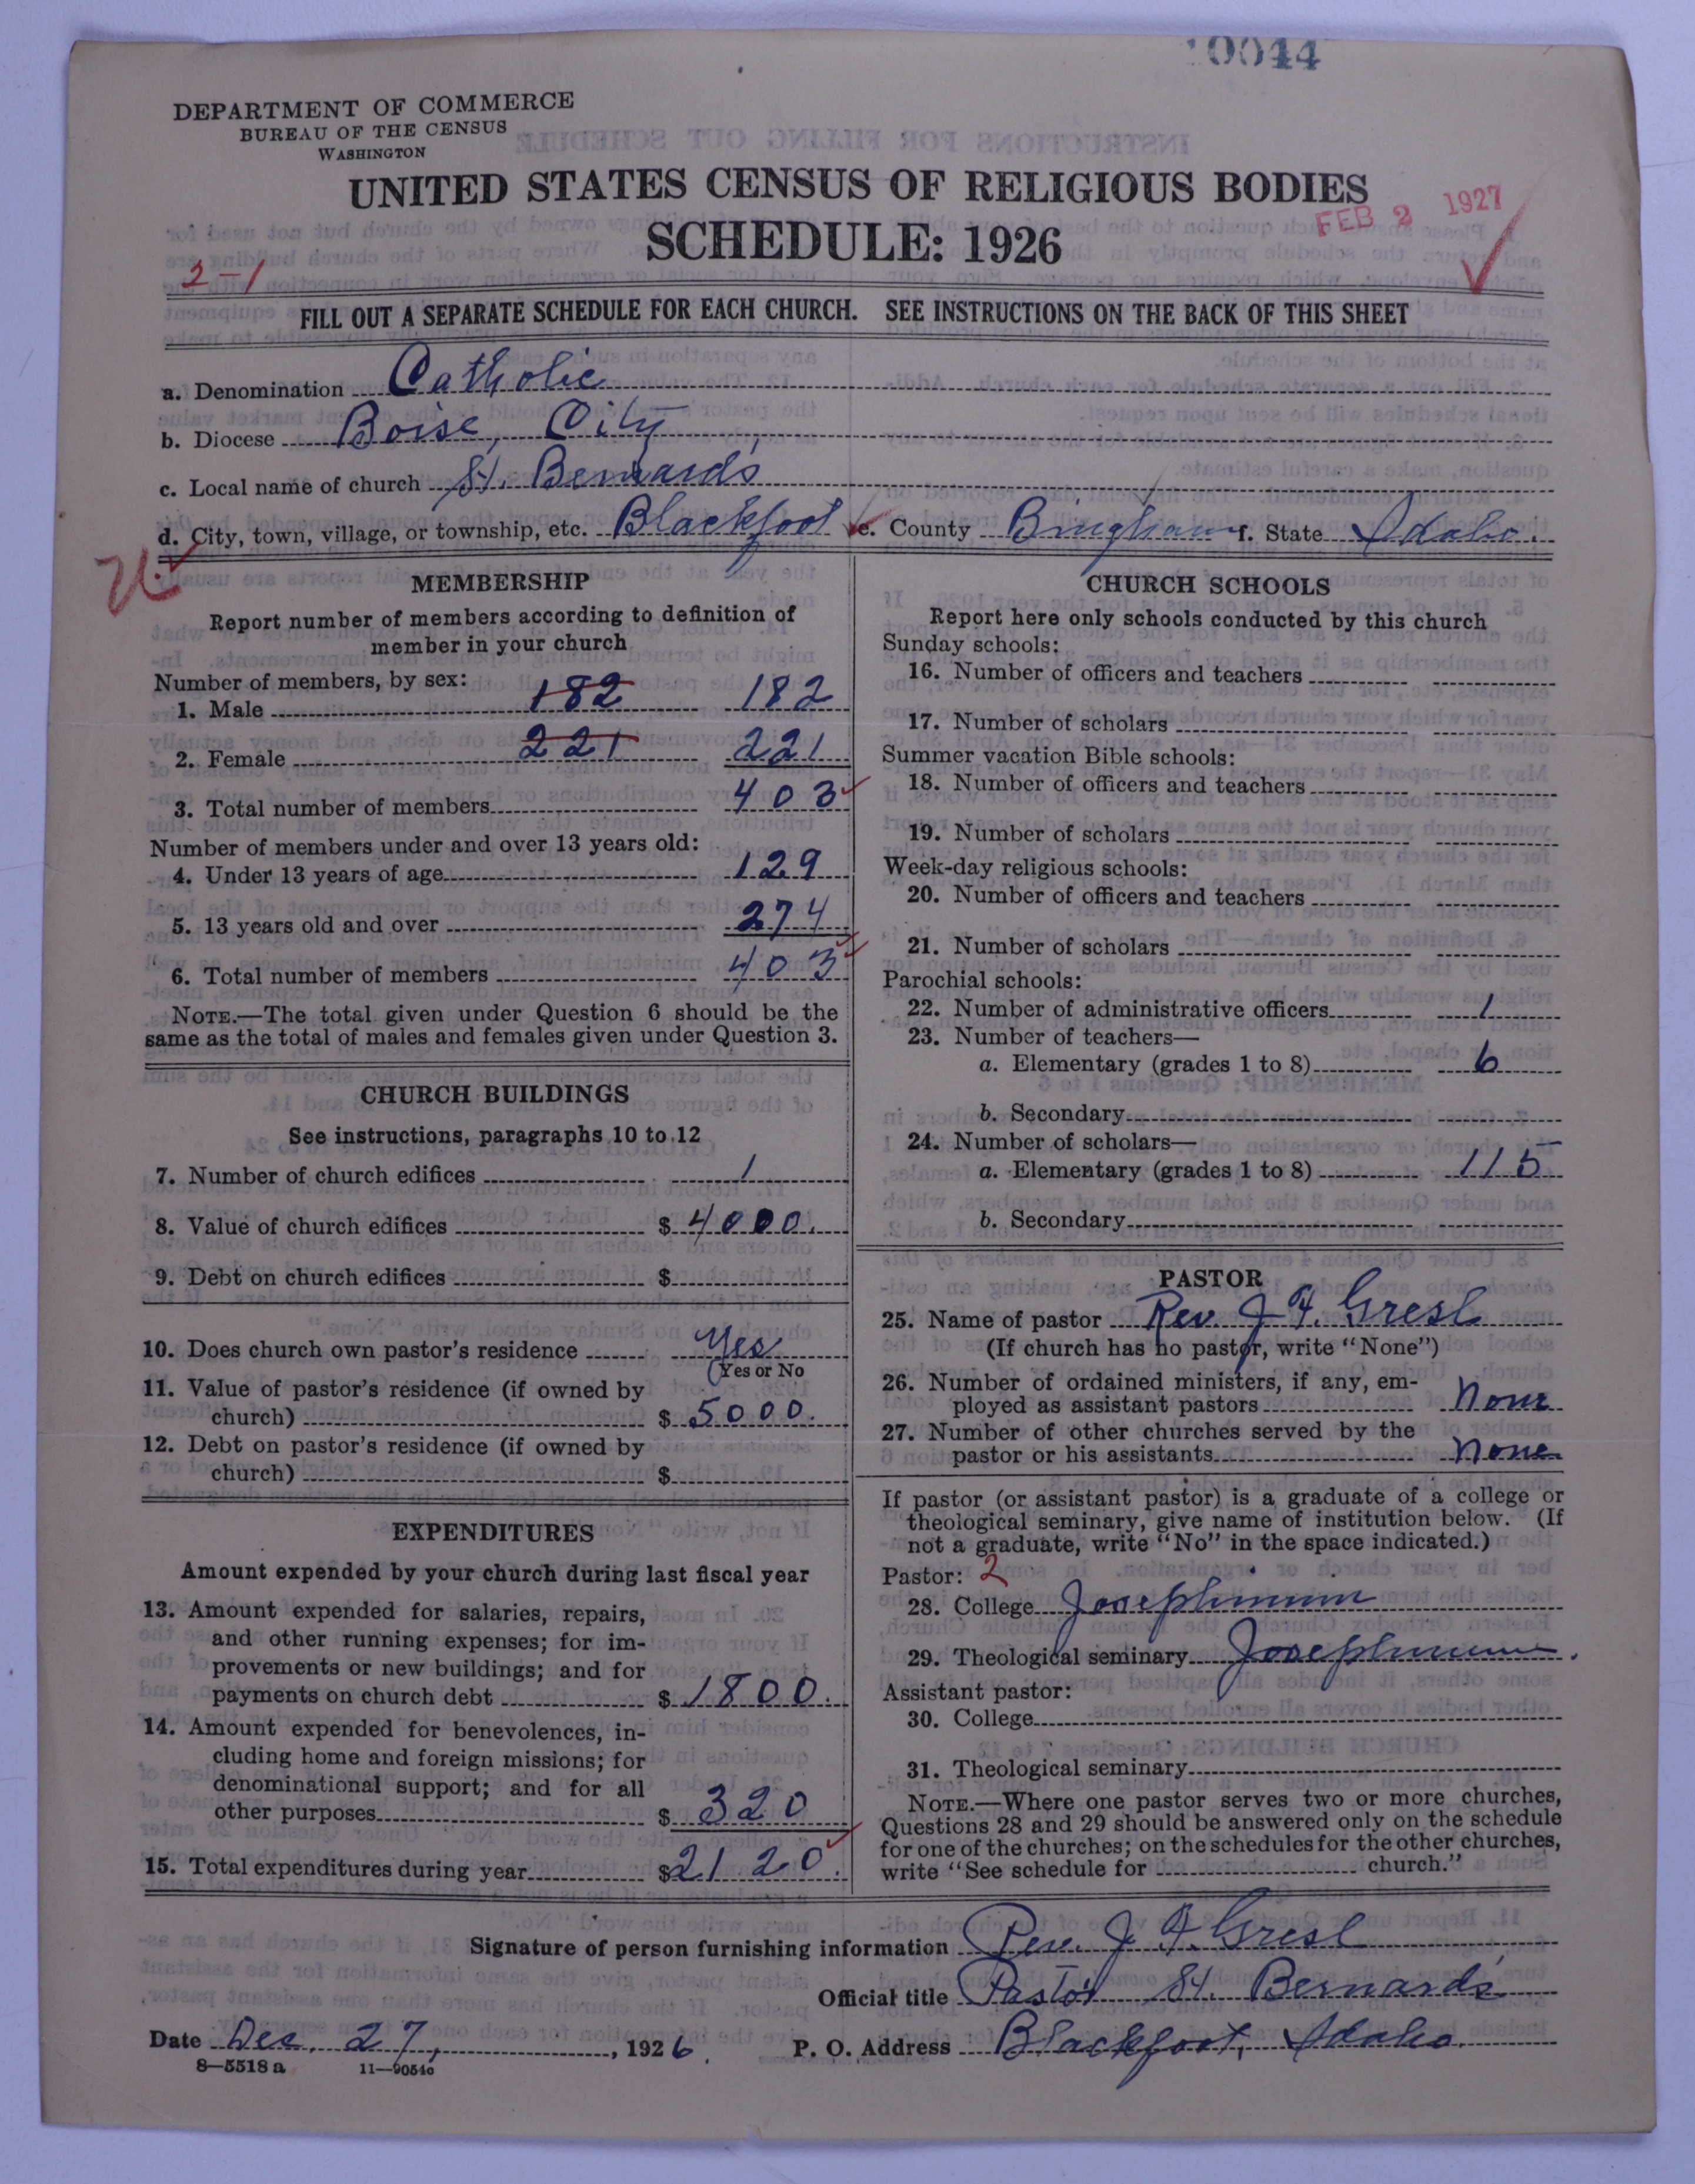 10044
DEPARTMENT OF COMMERCE
BUREAU OF THE CENSUS
WASHINGTON
UNITED STATES CENSUS OF RELIGIOUS BODIES
FEB 2 1927
SCHEDULE: 1926
2-1
FILL OUT A SEPARATE SCHEDULE FOR EACH CHURCH. SEE INSTRUCTIONS ON THE BACK OF THIS SHEET
a. Denomination Catholic
b. Diocese Boise, City
c. Local name of church St. Bernard's
d. City, town, village, or township, etc. Blackfoot e. County Bingham f. State Idaho.
MEMBERSHIP
Report number of members according to definition of
member in your church
Number of members, by sex:
1. Male 182 182
2. Female 221 221
3. Total number of members 403
Number of members under and over 13 years old:
4. Under 13 years of age 129
5. 13 years old and over 274
6. Total number of members 403
NOTE.—The total given under Question 6 should be the
same as the total of males and females given under Question 3.
CHURCH BUILDINGS
See instructions, paragraphs 10 to 12
7. Number of church edifices 1
8. Value of church edifices $ 4000.
9. Debt on church edifices $
10. Does church own pastor's residence Yes
(Yes or No
11. Value of pastor's residence (if owned by
church) $ 5000.
12. Debt on pastor's residence (if owned by
church) $
EXPENDITURES
Amount expended by your church during last fiscal year
13. Amount expended for salaries, repairs,
and other running expenses; for im-
provements or new buildings; and for
payments on church debt $ 1800.
14. Amount expended for benevolences, in-
cluding home and foreign missions; for
denominational support; and for all
other purposes $ 320
15. Total expenditures during year $2120.
CHURCH SCHOOLS
Report here only schools conducted by this church
Sunday schools:
16. Number of officers and teachers
17. Number of scholars
Summer vacation Bible schools:
18. Number of officers and teachers
19. Number of scholars
Week-day religious schools:
20. Number of officers and teachers
21. Number of scholars
Parochial schools:
22. Number of administrative officers 1
23. Number of teachers—
a. Elementary (grades 1 to 8) 6
b. Secondary
24. Number of scholars—
a. Elementary (grades 1 to 8) 115
b. Secondary
PASTOR
25. Name of pastor Rev J F. Gresl
(If church has no pastor, write "None")
26. Number of ordained ministers, if any, em-
ployed as assistant pastors None
27. Number of other churches served by the
pastor or his assistants None
If pastor (or assistant pastor) is a graduate of a college or
theological seminary, give name of institution below. (If
not a graduate, write "No" in the space indicated.)
Pastor: 2
28. College Josephinum
29. Theological seminary Josephinum.
Assistant pastor:
30. College
31. Theological seminary
NOTE.—Where one pastor serves two or more churches,
Questions 28 and 29 should be answered only on the schedule
for one of the churches; on the schedules for the other churches,
write "See schedule for church."
Signature of person furnishing information Rev. J F. Gresl
Official title Pastor St. Bernard's
Date Dec. 27, , 1926. P. O. Address Blackfoot, Idaho.
8—5518 a 11—9051a